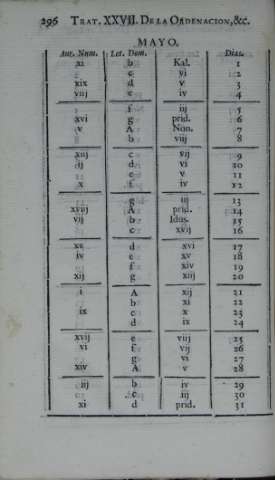 296 TRAT. XXVII. DE LA ORDENACION, &c.
MAYO.
Aur. Num. Let. Dom. Dias.
xi b Kal. 1
c vi 2
xix d v 3
viij e iv 4
f iij 5
xvi g prid. 6
v A Non. 7
b viij 8
xiij c vij 9
ij d vi 10
e v 11
x f iv 12
g iij 13
xviij A prid. 14
vij b Idus. 15
c xvij 16
xv d xvi 17
iv e xv 18
f xiv 19
xij g xiij 20
i A xij 21
b xi 22
ix c x 23
d ix 24
xvij e viij 25
vi f vij 26
g vi 27
xiv A v 28
iij b iv 29
c iij 30
xi d prid. 31